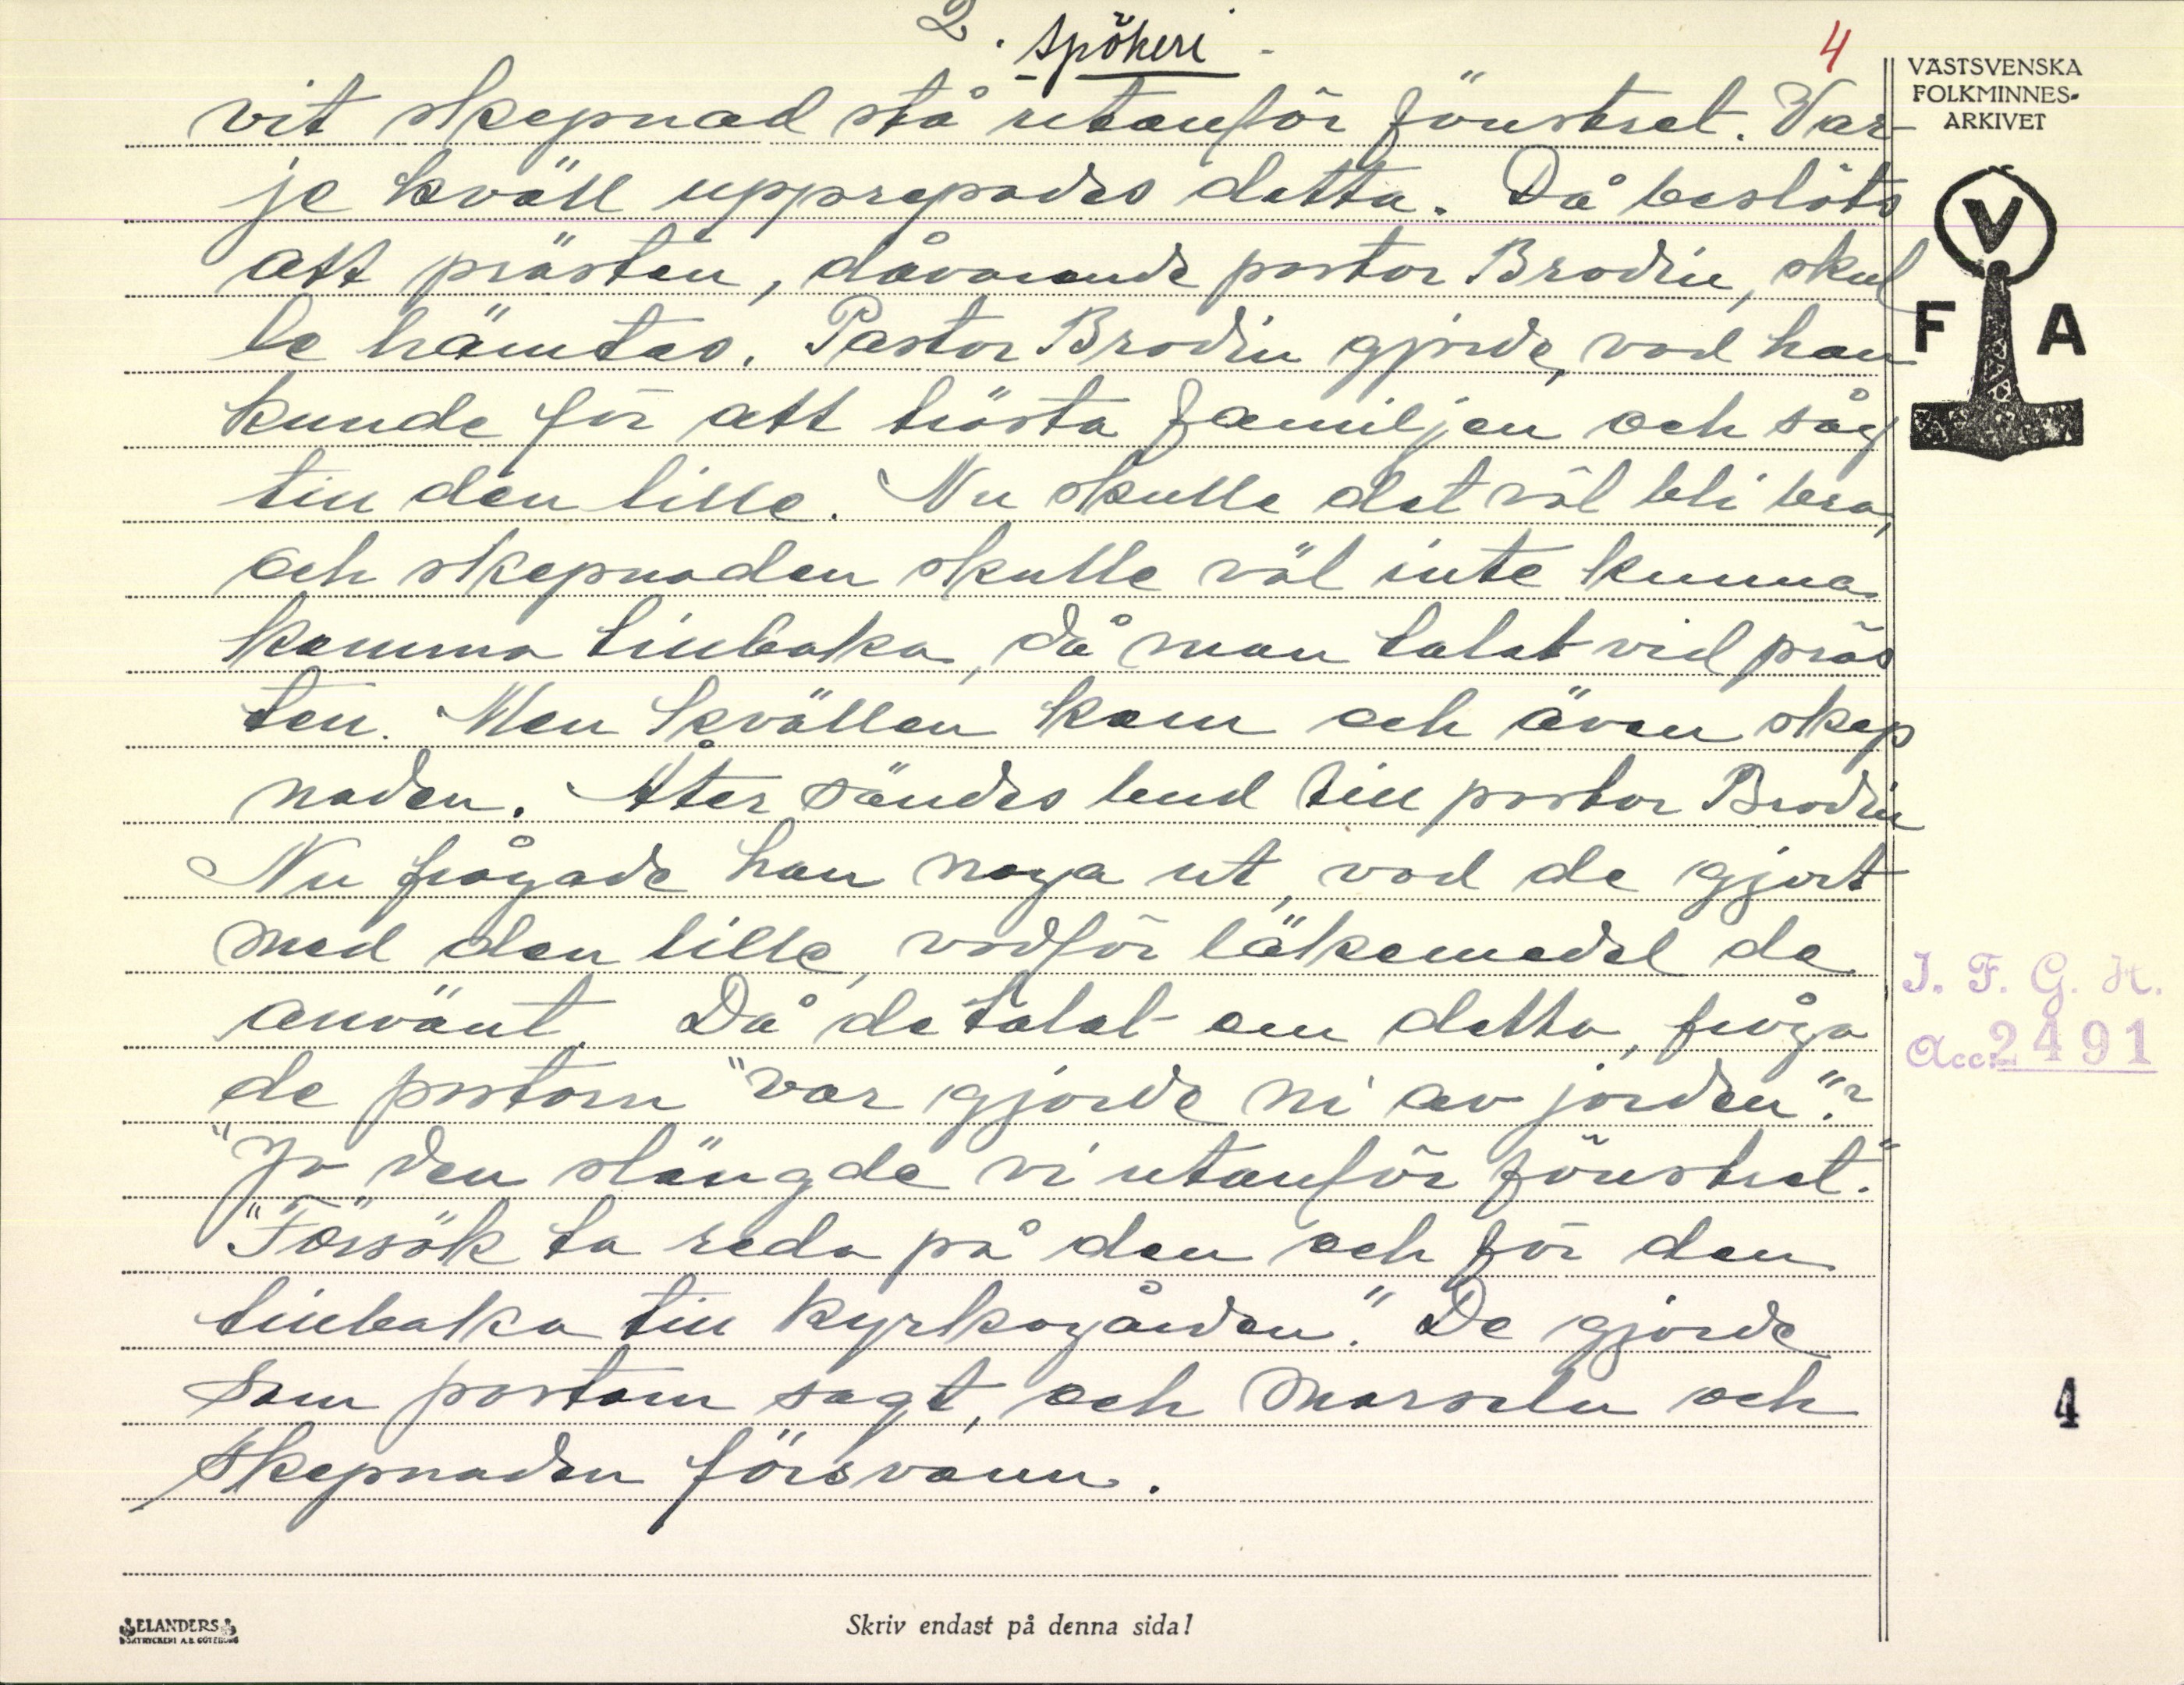 2. Spökeri -
4
VÄSTSVENSKA
FOLKMINNES-
ARKIVET
V
F A
vit skepnad stå utanför fönstret. Var-
je kväll upprepades detta. Då beslöts
att prästen, dåvarande pastor Brodin, skul
le hämtas. Pastor Brodin gjorde, vad han
kunde för att trösta familjen och såg
till den lille. Nu skulle det väl bli bra,
och skepnaden skulle väl inte kunna
komma tillbaka, då man talat vid präs
ten. Men kvällen kom och även skep
naden. Åter sändes bud till pastor Brodin
Nu frågade han noga ut, vad de gjort
med den lille, vadför läkemedel de
använt. Då de talat om detta, fråga
de pastorn "var gjorde ni av jorden"?
"Jo den slängde vi utanför fönstret."
"Försök ta reda på den och för den
tillbaka till kyrkogården." De gjorde
som pastorn sagt, och marseln och
skepnaden försvann.
I. F. G. H.
Acc. 2491
4
ELANDERS
BOKTRYCKERI A.B. GÖTEBORG
Skriv endast på denna sida!